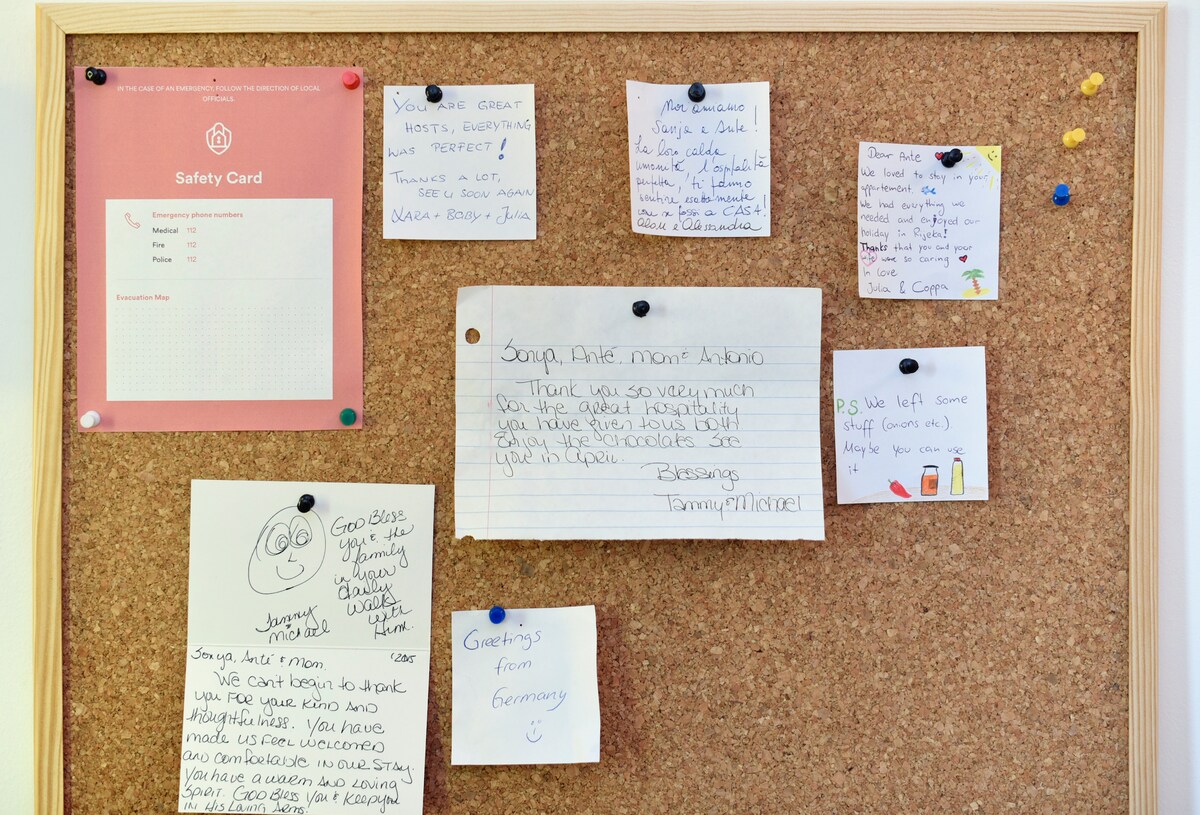 IN THE CASE OF AN EMERGENCY, FOLLOW THE DIRECTION OF LOCAL
OFFICIALS.
Safety Card
Emergency phone numbers
Medical 112
Fire 112
Police 112
Evacuation Map
YOU ARE GREAT
HOSTS, EVERYTHING
WAS PERFECT!
THANKS A LOT,
SEE U SOON AGAIN
NARA + BOBY + JULIA
Noi amiamo
Sanja e Ante!
La loro calda
umanità, l'ospitalità
perfetta, ti fanno
sentire esattamente
come se fossi a CASA!
e Alessandra
Dear Ante
We loved to stay in your
appartement.
We had everything we
needed and enjoyed our
holiday in Rijeka!
Thanks that you and your
wife were so caring
In love
Julia & Coppa
Sonya, Anté, mom & Antonio
Thank you so very much
for the great hospitality
you have given to us both
Enjoy the chocolates See
you in april.
Blessings
Tammy & Michael
P.S. We left some
stuff (onions etc.).
Maybe you can use
it
GOD Bless
you & the
family
in your
daily
walks
with
Him.
Tammy
&
michael
Sonya, Anté & mom, '2015
We can't begin to thank
you FOR YOUR KIND AND
thoughtfulness. You have
made us FEEL WELCOMED
AND comfortable IN OUR STAY.
You have a warm AND LOVING
SPIRIT. GOD Bless You & Keep you
IN HIS LOVING ARMS.
Greetings
from
Germany